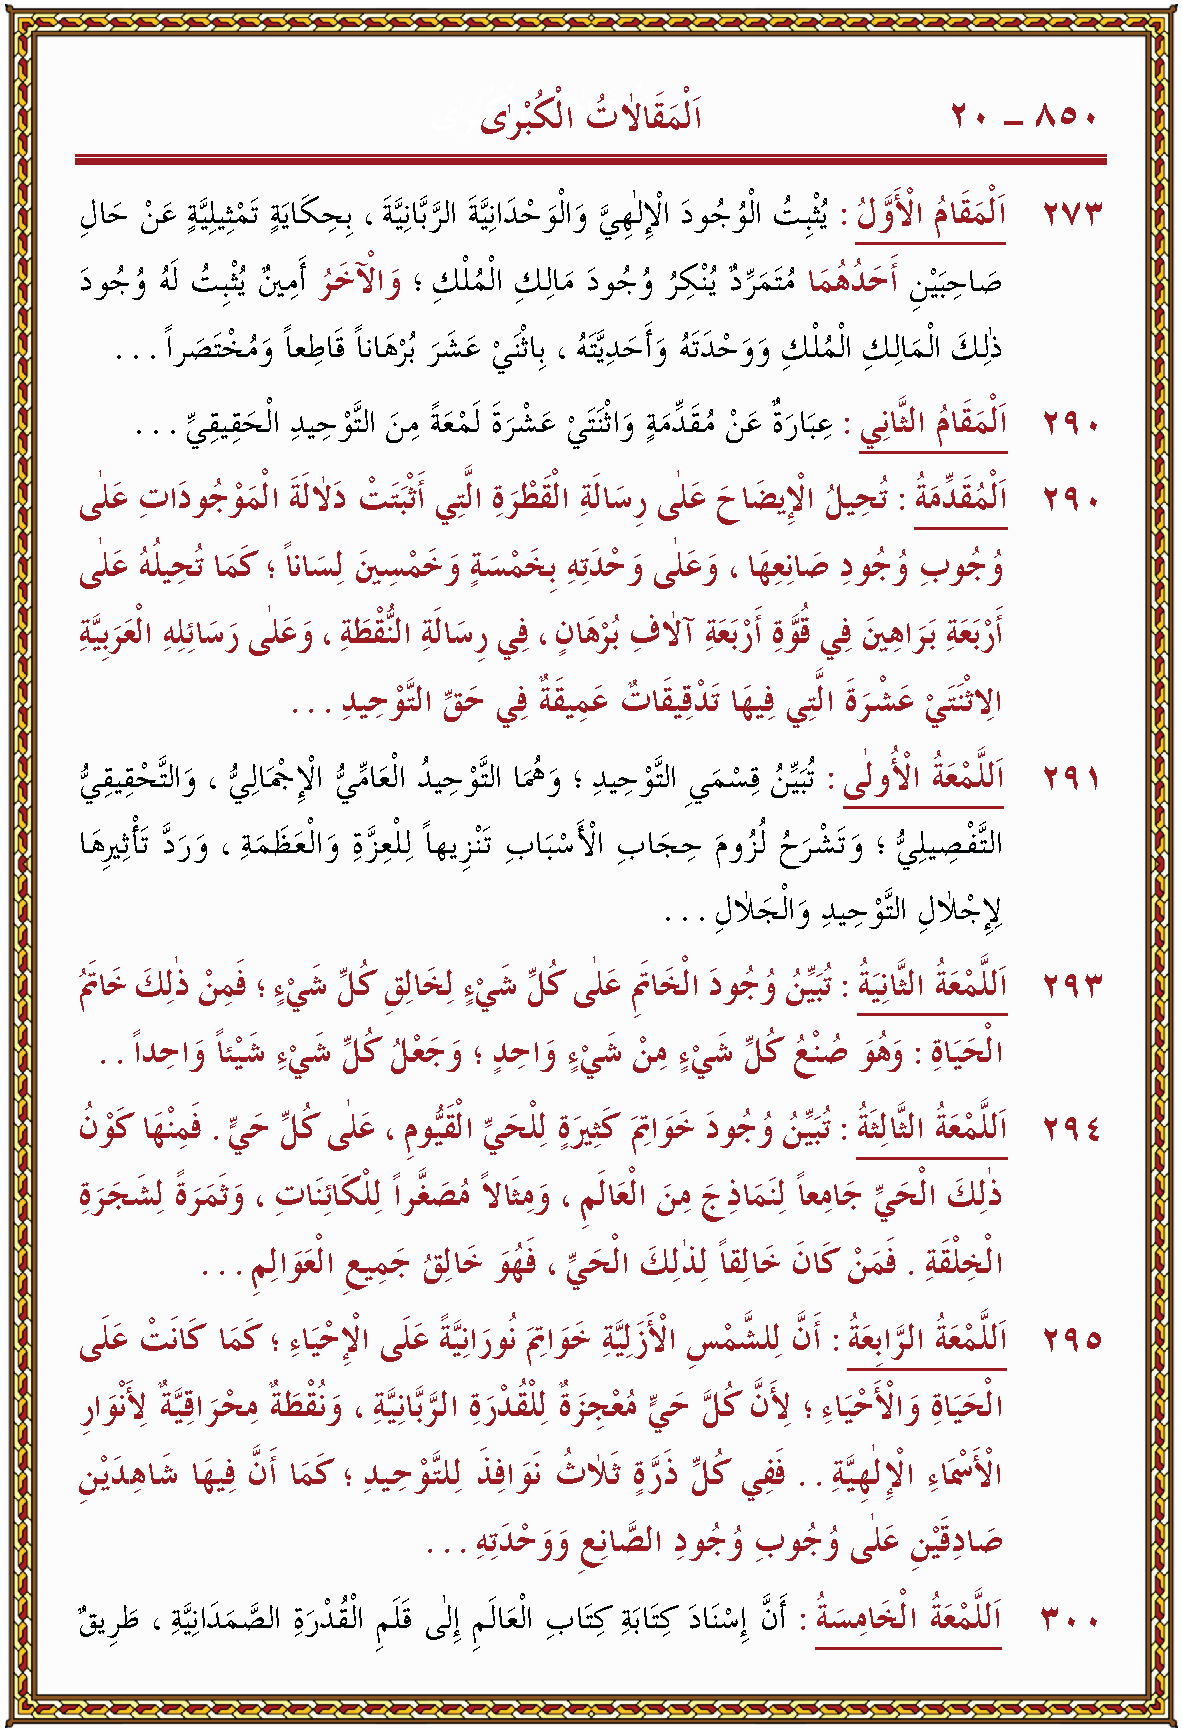 ٨٥٠ – ٢٠ اَلْمَقَالَاتُ الْكُبْرٰى
٢٧٣ اَلْمَقَامُ الْأَوَّلُ : يُثْبِتُ الْوُجُودَ الْإِلٰهِيَّ وَالْوَحْدَانِيَّةَ الرَّبَّانِيَّةَ ، بِحِكَايَةٍ تَمْثِيلِيَّةٍ عَنْ حَالِ
صَاحِبَيْنِ أَحَدُهُمَا مُتَمَرِّدٌ يُنْكِرُ وُجُودَ مَالِكِ الْمُلْكِ ؛ وَالْآخَرُ أَمِينٌ يُثْبِتُ لَهُ وُجُودَ
ذٰلِكَ الْمَالِكِ الْمُلْكِ وَوَحْدَتَهُ وَأَحَدِيَّتَهُ ، بِاثْنَيْ عَشَرَ بُرْهَاناً قَاطِعاً وَمُخْتَصَراً . . .
٢٩٠ اَلْمَقَامُ الثَّانِي : عِبَارَةٌ عَنْ مُقَدِّمَةٍ وَاثْنَتَيْ عَشْرَةَ لَمْعَةً مِنَ التَّوْحِيدِ الْحَقِيقِيِّ . . .
٢٩٠ اَلْمُقَدِّمَةُ : تُحِيلُ الْإِيضَاحَ عَلٰى رِسَالَةِ الْقَطْرَةِ الَّتِي أَثْبَتَتْ دَلَالَةَ الْمَوْجُودَاتِ عَلٰى
وُجُوبِ وُجُودِ صَانِعِهَا ، وَعَلٰى وَحْدَتِهِ بِخَمْسَةٍ وَخَمْسِينَ لِسَاناً ؛ كَمَا تُحِيلُهُ عَلٰى
أَرْبَعَةِ بَرَاهِينَ فِي قُوَّةِ أَرْبَعَةِ آلَافِ بُرْهَانٍ ، فِي رِسَالَةِ النُّقْطَةِ ، وَعَلٰى رَسَائِلِهِ الْعَرَبِيَّةِ
الِاثْنَتَيْ عَشْرَةَ الَّتِي فِيهَا تَدْقِيقَاتٌ عَمِيقَةٌ فِي حَقِّ التَّوْحِيدِ . . .
٢٩١ اَللَّمْعَةُ الْأُولٰى : تُبَيِّنُ قِسْمَيِ التَّوْحِيدِ ؛ وَهُمَا التَّوْحِيدُ الْعَامِّيُّ الْإِجْمَالِيُّ ، وَالتَّحْقِيقِيُّ
التَّفْصِيلِيُّ ؛ وَتَشْرَحُ لُزُومَ حِجَابِ الْأَسْبَابِ تَنْزِيهاً لِلْعِزَّةِ وَالْعَظَمَةِ ، وَرَدَّ تَأْثِيرِهَا
لِإِجْلَالِ التَّوْحِيدِ وَالْجَلَالِ . . .
٢٩٣ اَللَّمْعَةُ الثَّانِيَةُ : تُبَيِّنُ وُجُودَ الْخَاتَمِ عَلٰى كُلِّ شَيْءٍ لِخَالِقِ كُلِّ شَيْءٍ ؛ فَمِنْ ذٰلِكَ خَاتَمُ
الْحَيَاةِ : وَهُوَ صُنْعُ كُلِّ شَيْءٍ مِنْ شَيْءٍ وَاحِدٍ ؛ وَجَعْلُ كُلِّ شَيْءٍ شَيْئاً وَاحِداً . .
٢٩٤ اَللَّمْعَةُ الثَّالِثَةُ : تُبَيِّنُ وُجُودَ خَوَاتِمَ كَثِيرَةٍ لِلْحَيِّ الْقَيُّومِ ، عَلٰى كُلِّ حَيٍّ . فَمِنْهَا كَوْنُ
ذٰلِكَ الْحَيِّ جَامِعاً لِنَمَاذِجَ مِنَ الْعَالَمِ ، وَمِثَالاً مُصَغَّراً لِلْكَائِنَاتِ ، وَثَمَرَةً لِشَجَرَةِ
الْخِلْقَةِ . فَمَنْ كَانَ خَالِقاً لِذٰلِكَ الْحَيِّ ، فَهُوَ خَالِقُ جَمِيعِ الْعَوَالِمِ . . .
٢٩٥ اَللَّمْعَةُ الرَّابِعَةُ : أَنَّ لِلشَّمْسِ الْأَزَلِيَّةِ خَوَاتِمَ نُورَانِيَّةً عَلَى الْإِحْيَاءِ ؛ كَمَا كَانَتْ عَلَى
الْحَيَاةِ وَالْأَحْيَاءِ ؛ لِأَنَّ كُلَّ حَيٍّ مُعْجِزَةٌ لِلْقُدْرَةِ الرَّبَّانِيَّةِ ، وَنُقْطَةٌ مِحْرَاقِيَّةٌ لِأَنْوَارِ
الْأَسْمَاءِ الْإِلٰهِيَّةِ . . فَفِي كُلِّ ذَرَّةٍ ثَلَاثُ نَوَافِذَ لِلتَّوْحِيدِ ؛ كَمَا أَنَّ فِيهَا شَاهِدَيْنِ
صَادِقَيْنِ عَلٰى وُجُوبِ وُجُودِ الصَّانِعِ وَوَحْدَتِهِ . . .
٣٠٠ اَللَّمْعَةُ الْخَامِسَةُ : أَنَّ إِسْنَادَ كِتَابَةِ كِتَابِ الْعَالَمِ إِلٰى قَلَمِ الْقُدْرَةِ الصَّمَدَانِيَّةِ ، طَرِيقٌ